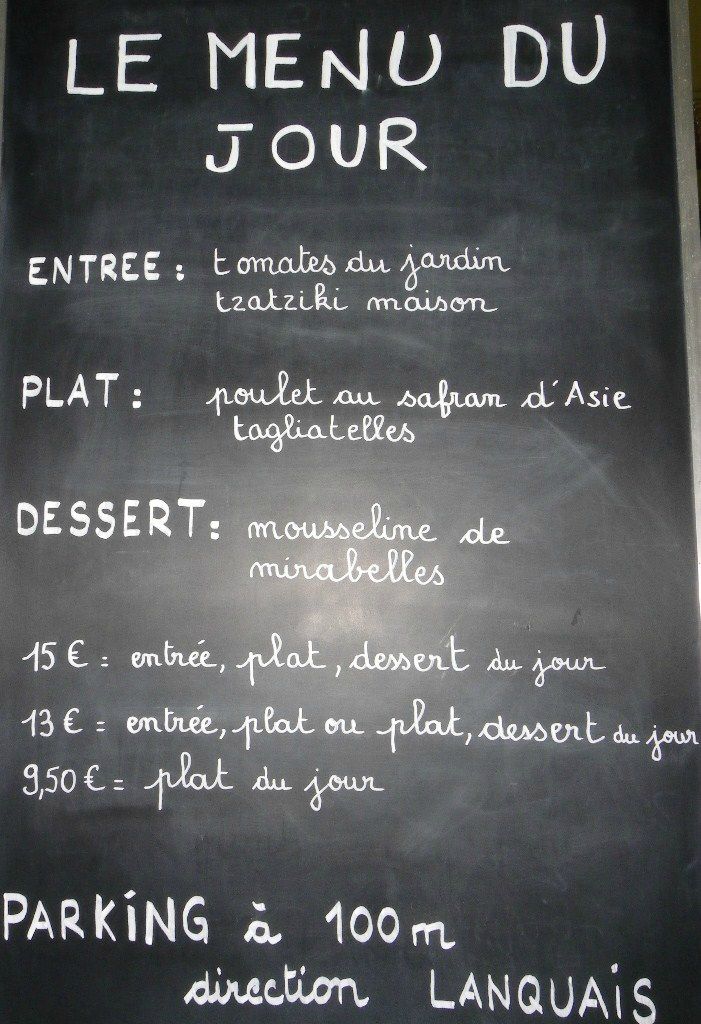 LE MENU DU
JOUR
ENTREE : tomates du jardin
tzatziki maison
PLAT : poulet au safran d'Asie
tagliatelles
DESSERT : mousseline de
mirabelles
15 € = entrée, plat, dessert du jour
13 € = entrée, plat ou plat, dessert du jour
9,50 € = plat du jour
PARKING à 100 m
direction LANQUAIS